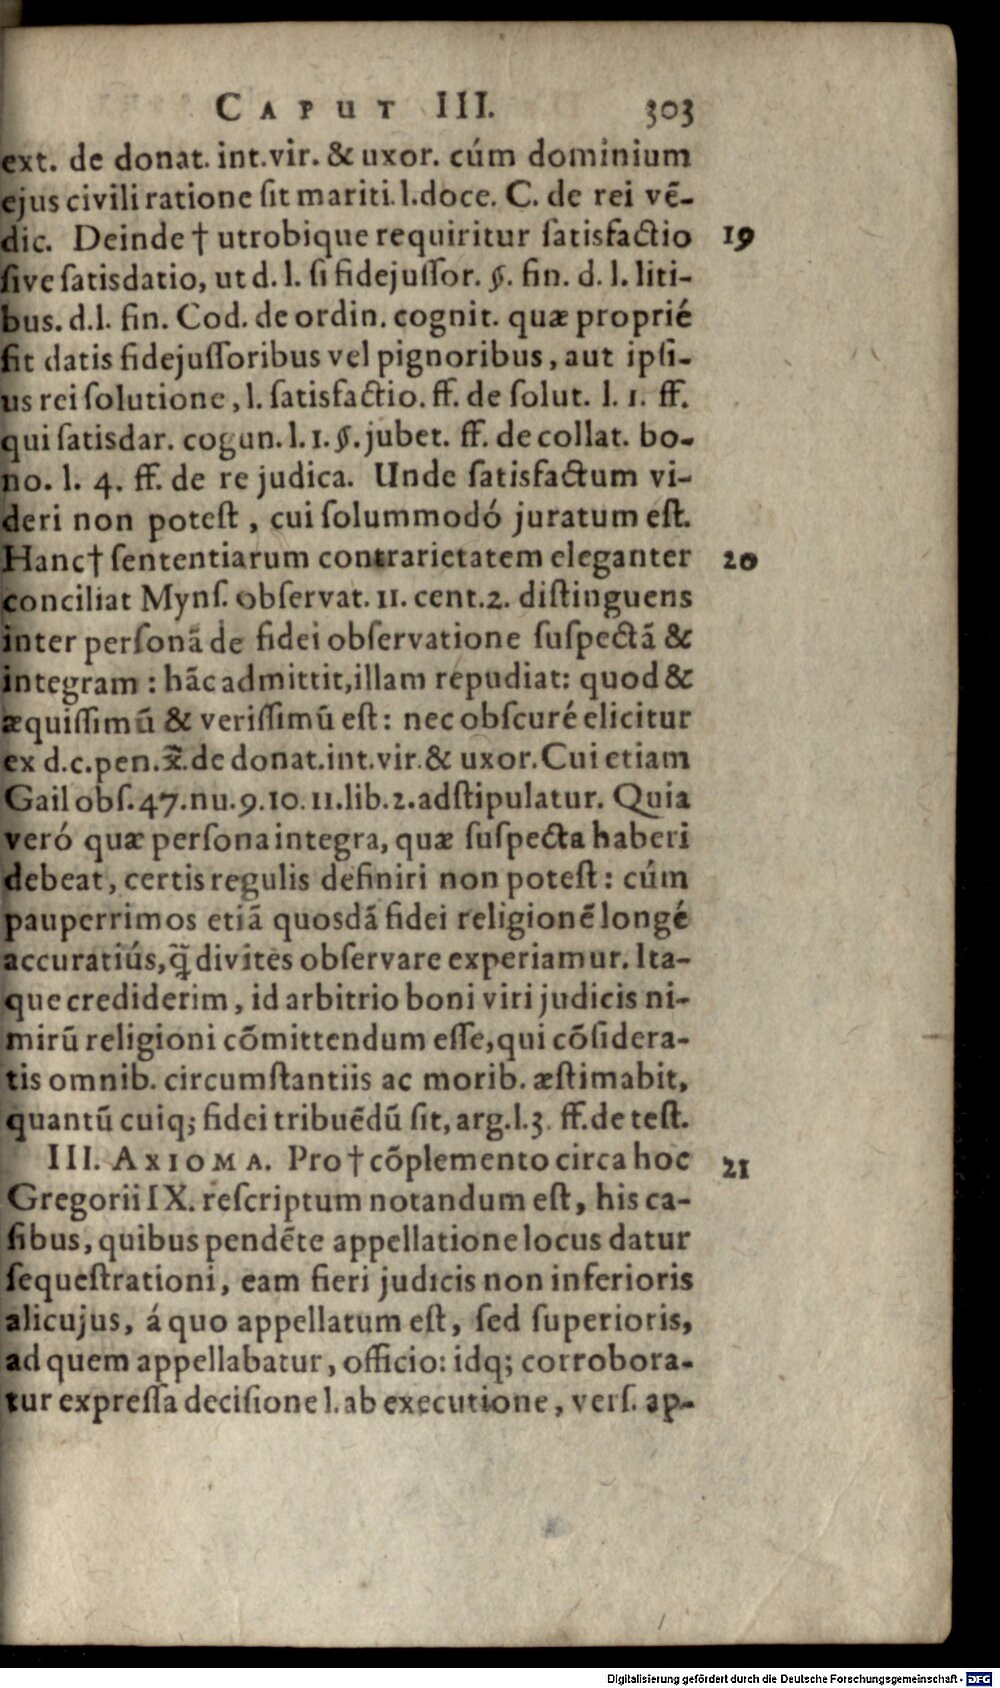 CAPUT III. 303
ext. de donat. int.vir. & uxor. cúm dominium
ejus civili ratione ſit mariti. l.doce. C. de rei vē-
dic. Deinde † utrobique requiritur ſatisfactio 19
ſive ſatisdatio, ut d. l. ſi fidejuſſor. §. fin. d. l. liti-
bus. d.l. fin. Cod. de ordin. cognit. quæ proprié
fit datis fidejuſſoribus vel pignoribus, aut ipſi-
us rei ſolutione, l. ſatisfactio. ff. de ſolut. l. 1. ff.
qui ſatisdar. cogun. l. 1. §. jubet. ff. de collat. bo-
no. l. 4. ff. de re judica. Unde ſatisfactum vi-
deri non poteſt, cui ſolummodó juratum eſt.
Hanc† ſententiarum contrarietatem eleganter 20
conciliat Mynſ. obſervat. 11. cent. 2. diſtinguens
inter perſonā de fidei obſervatione ſuſpectā &
integram : hāc admittit, illam repudiat: quod &
æquiſſimū & veriſſimū eſt: nec obſcuré elicitur
ex d.c.pen.x̃.de donat.int.vir.& uxor. Cui etiam
Gail obſ.47.nu.9.10.11.lib.2.adſtipulatur. Quia
veró quæ perſona integra, quæ ſuſpecta haberi
debeat, certis regulis definiri non poteſt: cúm
pauperrimos etiā quosdā fidei religionē longé
accuratiús, q̃ divites obſervare experiamur. Ita-
que crediderim, id arbitrio boni viri judicis ni-
mirū religioni cōmittendum eſſe, qui cōſidera-
tis omnib. circumſtantiis ac morib. æſtimabit,
quantū cuiq; fidei tribuēdū ſit, arg.l.3. ff.de teſt.
III. AXIOMA. Pro † cōplemento circa hoc 21
Gregorii IX. reſcriptum notandum eſt, his ca-
ſibus, quibus pendēte appellatione locus datur
ſequeſtrationi, eam fieri judicis non inferioris
alicujus, á quo appellatum eſt, ſed ſuperioris,
ad quem appellabatur, officio: idq; corrobora-
tur expreſſa deciſione l. ab executione, verſ. ap-
Digitalisierung gefördert durch die Deutsche Forschungsgemeinschaft - DFG